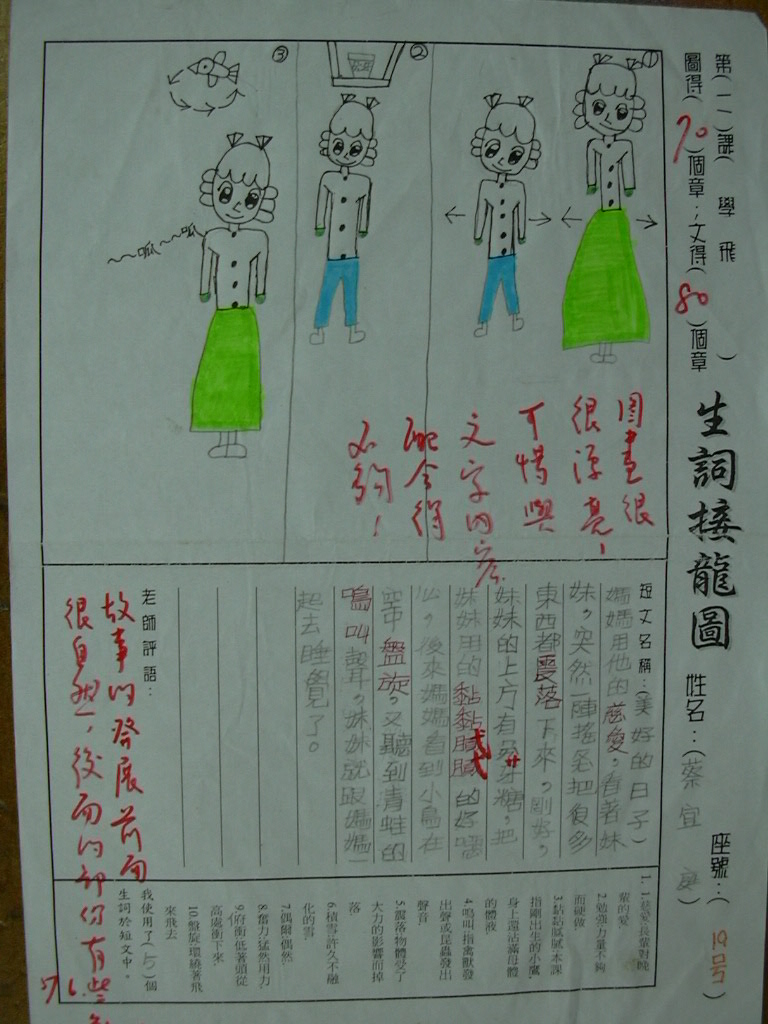 第(一一)課( 學 飛 )
圖得(70)個章;文得(80)個章
生詞接龍圖
姓名:(蔡宜庭)
座號:(19号)
①
②
③
呱 呱
圖畫很
很漂亮!
可惜與
文字內容
配合得
不夠!
短文名稱:(美好的日子)
媽媽用他的慈愛。看著妹
妹。突然一陣搖晃把很多
東西都震落下來。剛好。
妹妹的上方有麥芽糖。把
妹妹用的黏黏膩膩的好噁
心。後來媽媽看到小鳥在
空中盤旋。又聽到青蛙的
鳴叫聲。妹妹就跟媽媽一
起去睡覺了。
老師評語:
故事的發展前面
很自然,後面的部份有些
1. 1.慈愛:長輩對晚
輩的愛
2.勉強:力量不夠
而硬做
3.黏黏膩膩:本課
指剛出生的小鷹,
身上還沾滿母體
的體液
4.鳴叫:指禽獸發
出聲或昆蟲發出
聲音
5.震落:物體受了
大力的影響而掉
落
6.積雪:許久不融
化的雪.
7.偶爾:偶然.
8.奮力:猛然用力
9.俯衝:低著頭從
高處衝下來.
10.盤旋:環繞著飛
來飛去
我使用了(5)個
生詞於短文中。